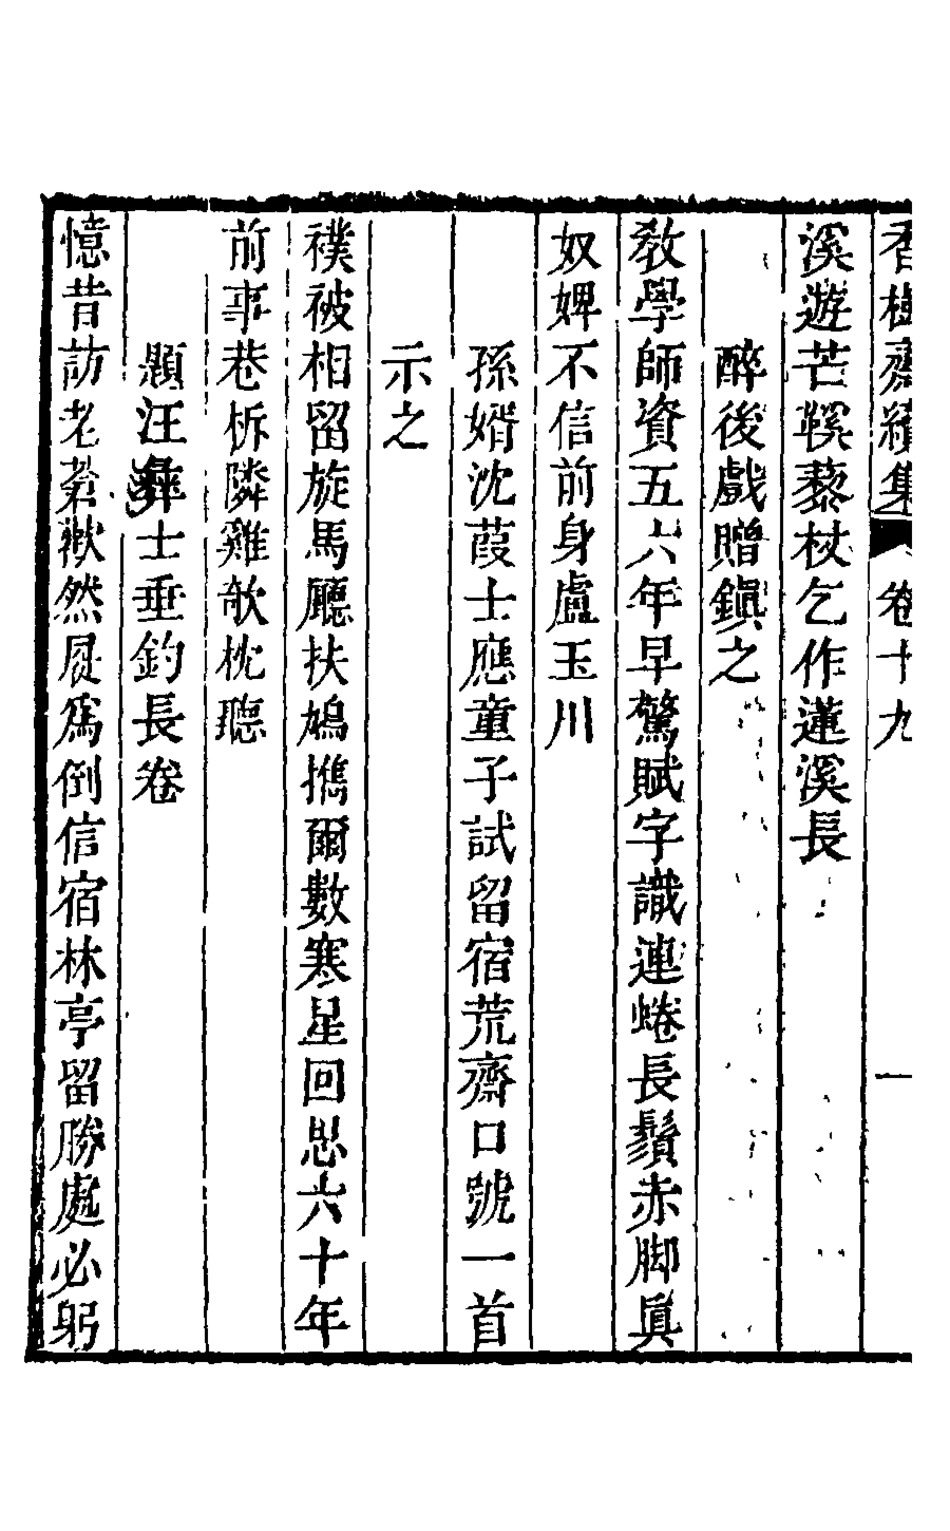 香樹齋續集 卷十九 一
溪遊芒鞵藜杖乞作蓮溪長
醉後戲贈鎭之
敎學師資五六年早驚賦字識連蜷長鬚赤脚眞
奴婢不信前身盧玉川
孫婿沈葭士應童子試留宿荒齋口號一首
示之
襆被相留旋馬廳扶鳩攜爾數寒星回思六十年
前事巷柝隣雞欹枕聽
題汪彝士垂釣長卷
憶昔訪老若歡然屣爲倒信宿林亭留勝處必躬